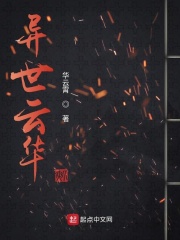 异世云华
华云霄
著
起点中文网